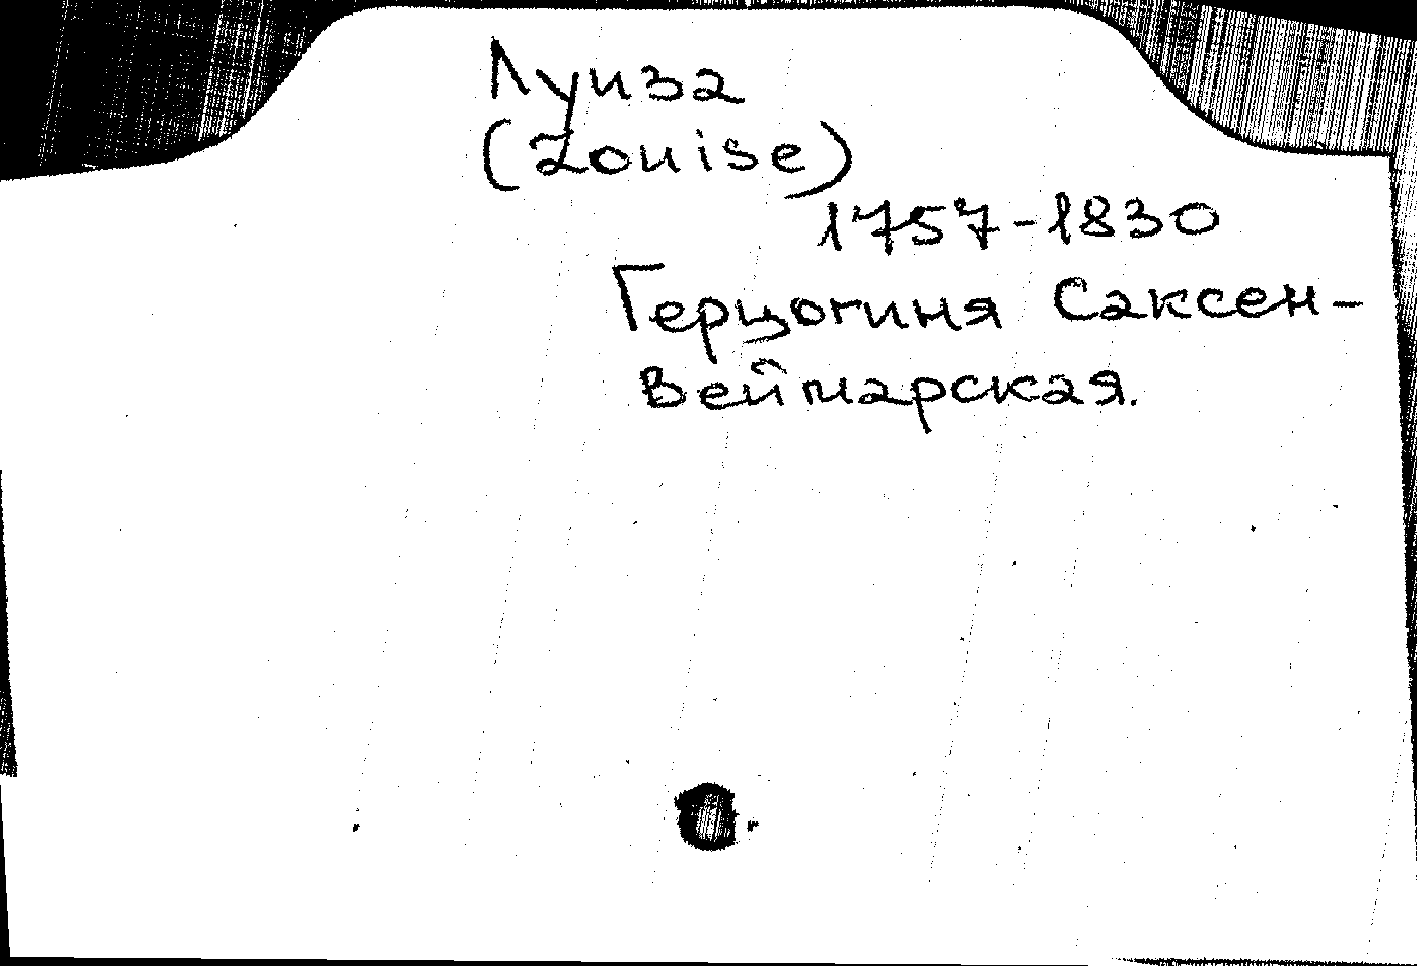 Луиза
(Louise)
1757-1830
Герцогиня Саксен-
Веймарская.